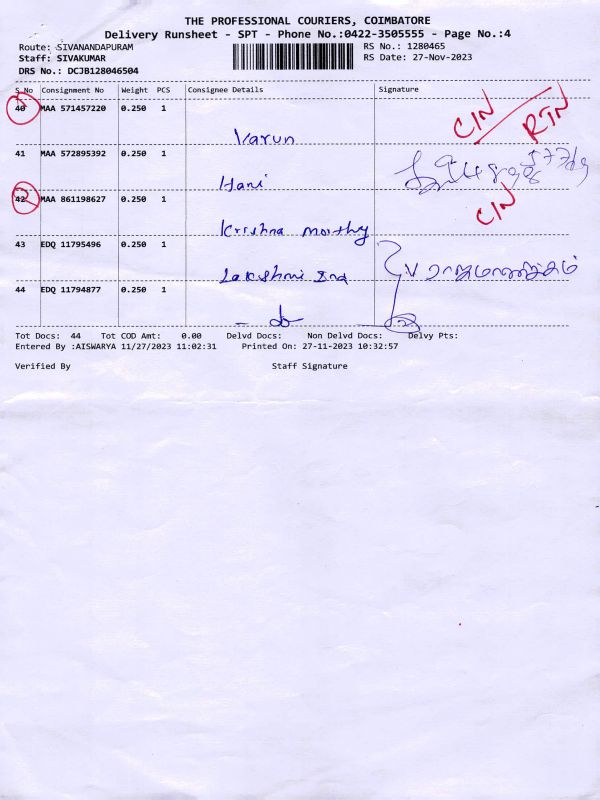 THE PROFESSIONAL COURIERS, COIMBATORE
Delivery Runsheet - SPT - Phone No.:0422-3505555 - Page No.:4
Route: SIVANANDAPURAM
RS No.: 1280465
Staff: SIVAKUMAR
RS Date: 27-Nov-2023
DRS No.: DCJB128046504
S.No Consignment No Weight PCS Consignee Details Signature
40 MAA 571457220 0.250 1
Varun CIN RTN
41 MAA 572895392 0.250 1
Hani
42 MAA 861198627 0.250 1 CIN
Krishna moorthy
43 EDQ 11795496 0.250 1
Lakshmi Ind
44 EDQ 11794877 0.250 1
- do
Tot Docs: 44 Tot COD Amt: 0.00 Delvd Docs: Non Delvd Docs: Delvy Pts:
Entered By :AISWARYA 11/27/2023 11:02:31 Printed On: 27-11-2023 10:32:57
Verified By Staff Signature